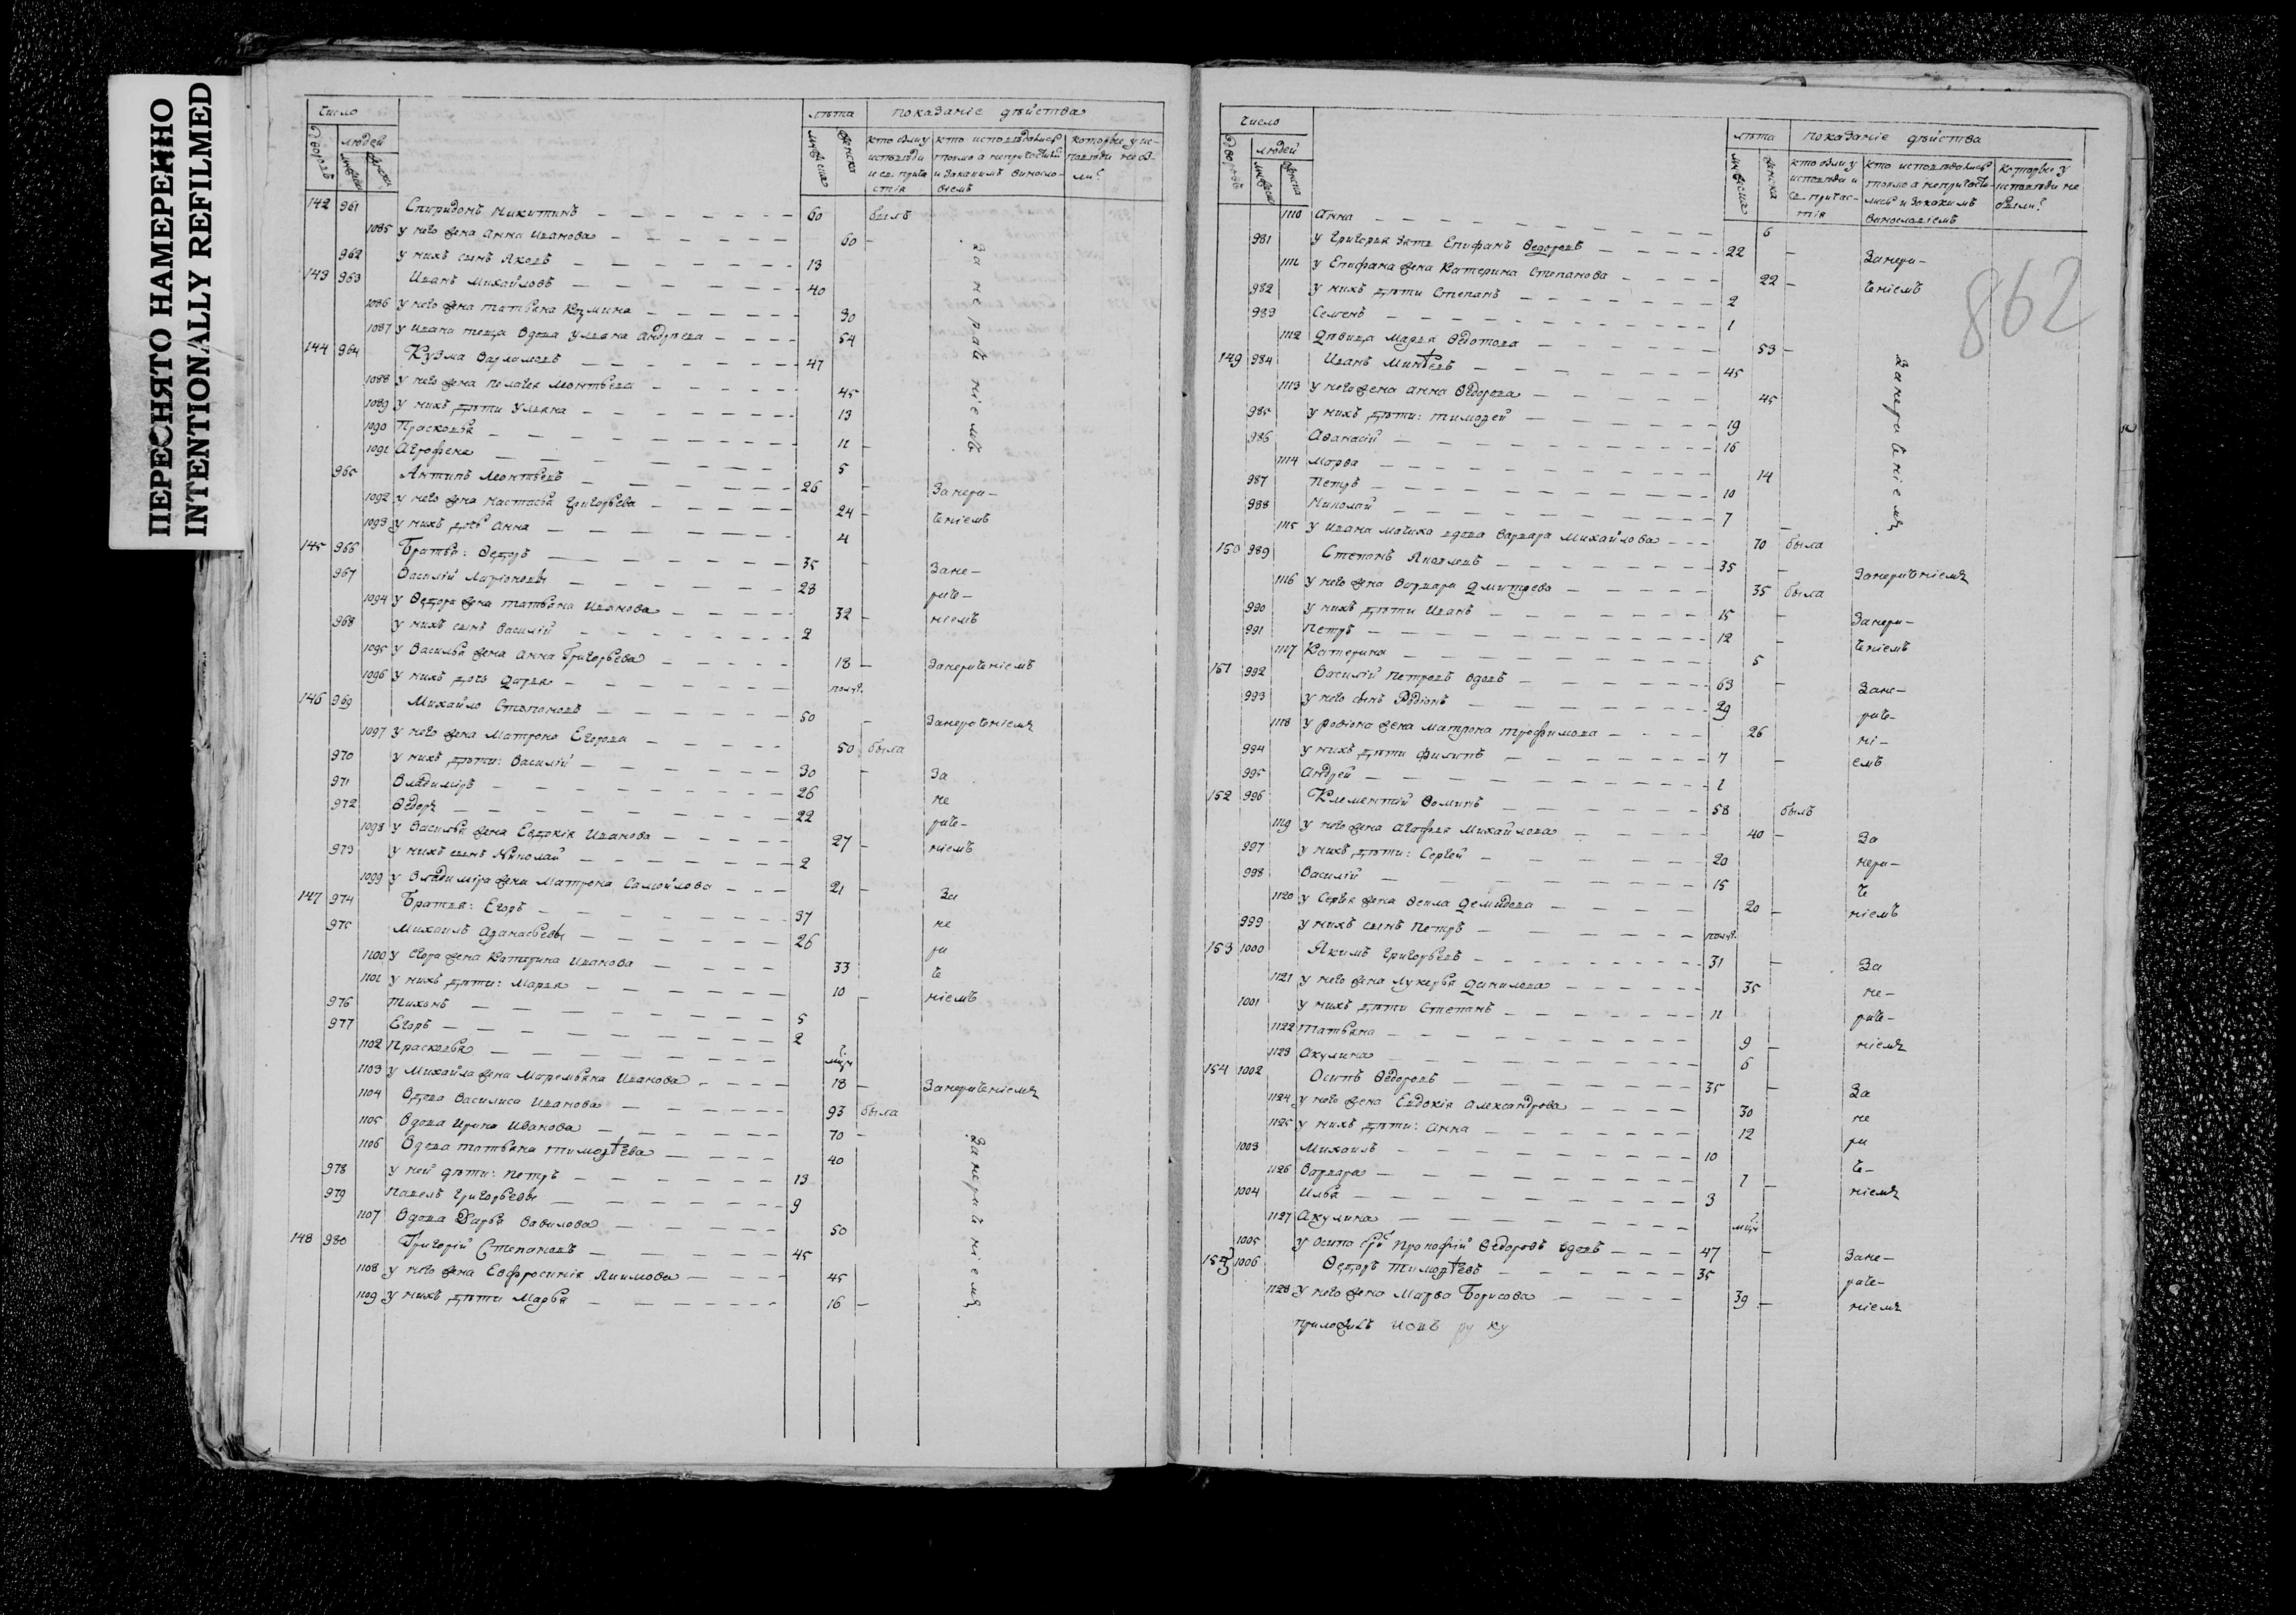 ПЕРЕСНЯТО НАМЕРЕННО
INTENTIONALLY REFILMED
число лѣта показаніе дѣйства
дворовъ людей мужеска женска кто были у исповѣди и св. прича стія кто исповѣдались токмо а непричастил и закакимъ винословіемъ которые у исповѣди не были?
142 961 Спиридонъ Никитинъ 60 былъ
1085 у него жена Анна Иванова 60 -
962 у нихъ сынъ Яковъ 13
143 963 Иванъ Михайловъ 40
1086 у него жена Татьяна Козмина 30
1087 у Ивана теща вдова Ульяна Андреева 54
144 964 Кузма Варламовъ 47
1088 у него жена Пелагея Леонтьева 45
1089 у нихъ дѣти Ульяна 13
1090 Прасковья 11
1091 Агрофена 5
занераченіемъ
965 Антипъ Леонтьевъ 26 - Занера-
1092 у него жена Настасья Григорьева 24 - ченіемъ
1093 у нихъ дочь Анна 4
145 966 Братья: Ѳедоръ 35 - Зане-
967 Василій Ларіоновы 28 раче-
1094 у Ѳедора жена Татьяна Иванова 32 - ніемъ
968 у нихъ сынъ Василій 2
1095 у Василья жена Анна Григорьева 18 - Занераченіемъ
1096 у нихъ дочь Дарья полуг.
146 969 Михайло Степановъ 50 - Занераченіемъ
1097 у него жена Матрона Егорова 50 была
970 у нихъ дѣти: Василій 30 - За
971 Владиміръ 26 не
972 Ѳедоръ 22 раче-
1098 у Василья жена Евдокія Иванова 27 - ніемъ
973 у нихъ сынъ Николай 2
1099 у Владиміра жена Матрона Самойлова 21 - За
147 974 Братья: Егоръ 37 не
975 Михаилъ Аѳанасьевы 26 ра
1100 у Егора жена Катерина Иванова 33 че
1101 у нихъ дѣти: Марья 10 - ніемъ
976 Тихонъ 5
977 Егоръ 2
1102 Прасковья
1103 у Михайла жена Маремьяна Иванова 18 - Занераченіемъ
1104 Вдова Василиса Иванова 93 была
1105 Вдова Ирина Иванова 70 -
1106 Вдова Татьяна Тимоѳѣева 40
978 у ней дѣти: Петръ 13
979 Павелъ Григорьевы 9
1107 Вдова Дарья Вавилова 50
148 980 Григорій Степановъ 45
1108 у него жена Евфросинія Акимова 45
1109 у нихъ дѣти Марья 16 -
Занераченіемъ
862
число лѣта показаніе дѣйства
дворовъ людей мужеска женска кто были у исповѣди и св. причастія кто исповѣдались токмо а непричастились и закакимъ винословіемъ которые у исповѣди не были?
1110 Анна 6
981 у Григорья зять Епифанъ Ѳедоровъ 22 - Занера-
1111 у Епифана жена Катерина Степанова 22 - ченіемъ
982 у нихъ дѣти Степанъ 2
983 Семенъ 1
1112 Дѣвица Марья Ѳедотова 53 -
149 984 Иванъ Минѣевъ 45
1113 у него жена Анна Ѳедорова 45
985 у нихъ дѣти: Тимоѳей 19
986 Аѳанасій 16
1114 Марѳа 14
987 Петръ 10
988 Николай 7
Занераченіемъ
1115 у Ивана мачиха вдова Варвара Михайлова 70 была
150 989 Степанъ Яковлевъ 35 - Занераченіемъ
1116 у него жена Варвара Дмитрева 35 была
990 у нихъ дѣти Иванъ 15 - Занера-
991 Петръ 12 - ченіемъ
1117 Катерина 5
151 992 Василій Петровъ вдовъ 63 - Зане-
993 у него сынъ Родіонъ 29 раче-
1118 у Родіона жена Матрона Трофимова 26 ні-
994 у нихъ дѣти Филипъ 7 - емъ
995 Андрей 1
152 996 Климентій Ѳоминъ 58 былъ
1119 у него жена Агофья Михайлова 40 - За
997 у нихъ дѣти: Сергей 20 нера-
998 Василій 15 че
1120 у Сергья жена Ѳекла Демидова 20 - ніемъ
999 у нихъ сынъ Петръ полуг.
153 1000 Якимъ Григорьевъ 31 - За
1121 у него жена Лукерья Данилова 35 не-
1001 у нихъ дѣти Степанъ 11 раче-
1122 Татьяна 9 - ніемъ
1123 Акулина 6
154 1002 Осипъ Ѳедоровъ 35 - За
1124 у него жена Евдокія Александрова 30 не
1125 у нихъ дѣти: Анна 12 ра
1003 Михаилъ 10 че-
1126 Варвара 7 - ніемъ
1004 Илья 3
1127 Акулина
1005 у Осипа бр. Прокофій Ѳедоровъ вдовъ 47 - Зане-
155 1006 Ѳедоръ Тимоѳѣевъ 35 раче-
1128 у него жена Марѳа Борисова 39 - ніемъ
приложилъ руку